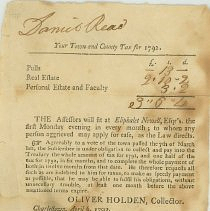 Daniel Read
Your Town and County Tax for 1792.
Polls
Real Estate
Personal Estate and Faculty
THE Assessors will sit at Eliphalet Newell, Esqr's. the
first Monday evening in every month; to whom any
person aggrieved may apply for ease, as the Law directs.
Agreeably to a vote of the town passed the 7th of March
the Subscriber is under obligation to collect and pay into the
Treasury the whole amount of tax for 1791, and one half of the
tax for 1792, in six months, and to complete the whole payment of
both in twelve months from the date hereof. He therefore requests
all such as are indebted to him for taxes, to make as speedy payment
as possible, that he may be enabled to fulfil his obligations.
unnecessary trouble, at least one month before the above
mentioned terms expire.
OLIVER HOLDEN, Collector.
Charlestown, April 2, 1792.